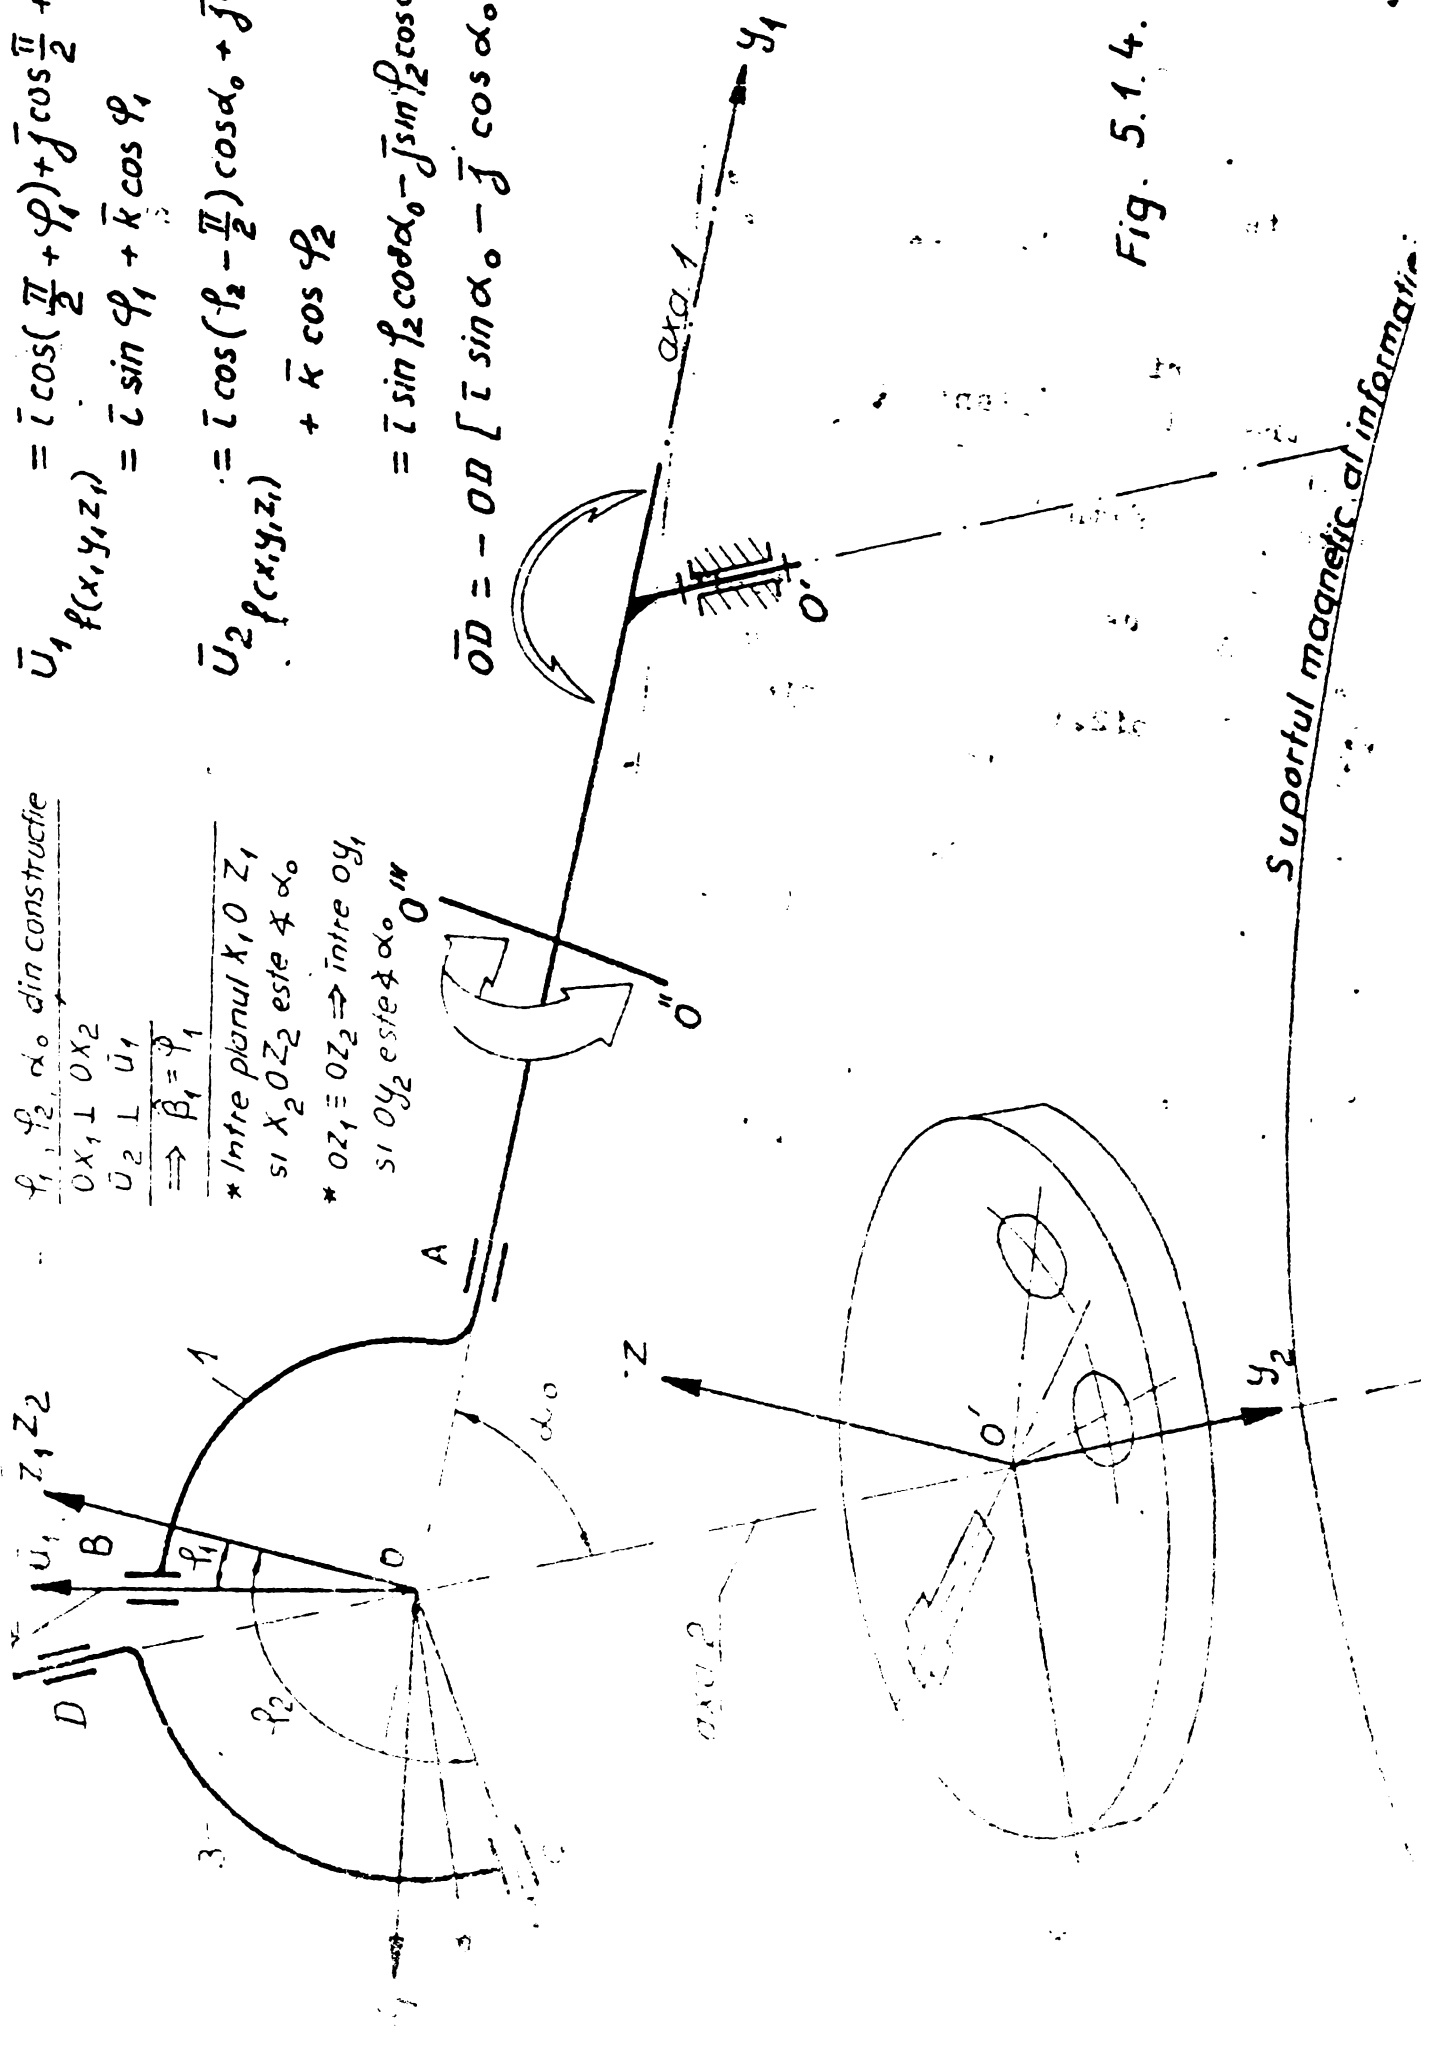 φ₁, φ₂, α₀ din constructie
OX₁ ⊥ OX₂
ū₂ ⊥ ū₁
⇒ β̂₁ = φ₁
* Intre planul X₁OZ₁
si X₂OZ₂ este ∢ α₀
* OZ₁ ≡ OZ₂ ⇒ intre OY₁
si OY₂ este ∢ α₀
ū₁ f(x₁y₁z₁) = ī cos(π/2 + φ₁) + j̄ cos π/2 +
= ī sin φ₁ + k̄ cos φ₁
ū₂ f(x₁y₁z₁) = ī cos(φ₂ - π/2) cos α₀ + j̄
+ k̄ cos φ₂
= ī sin φ₂ cos α₀ - j̄ sin φ₂ cos
OD̄ = - OD [ ī sin α₀ - j̄ cos α₀
D
ū₁
B
Z₁Z₂
1
φ₁
φ₂
3
O
A
α₀
O''
O'''
axa 1
y₁
O'
axa 2
Z
O'
y₂
Suportul magnetic al informatiei
Fig. 5.1.4.